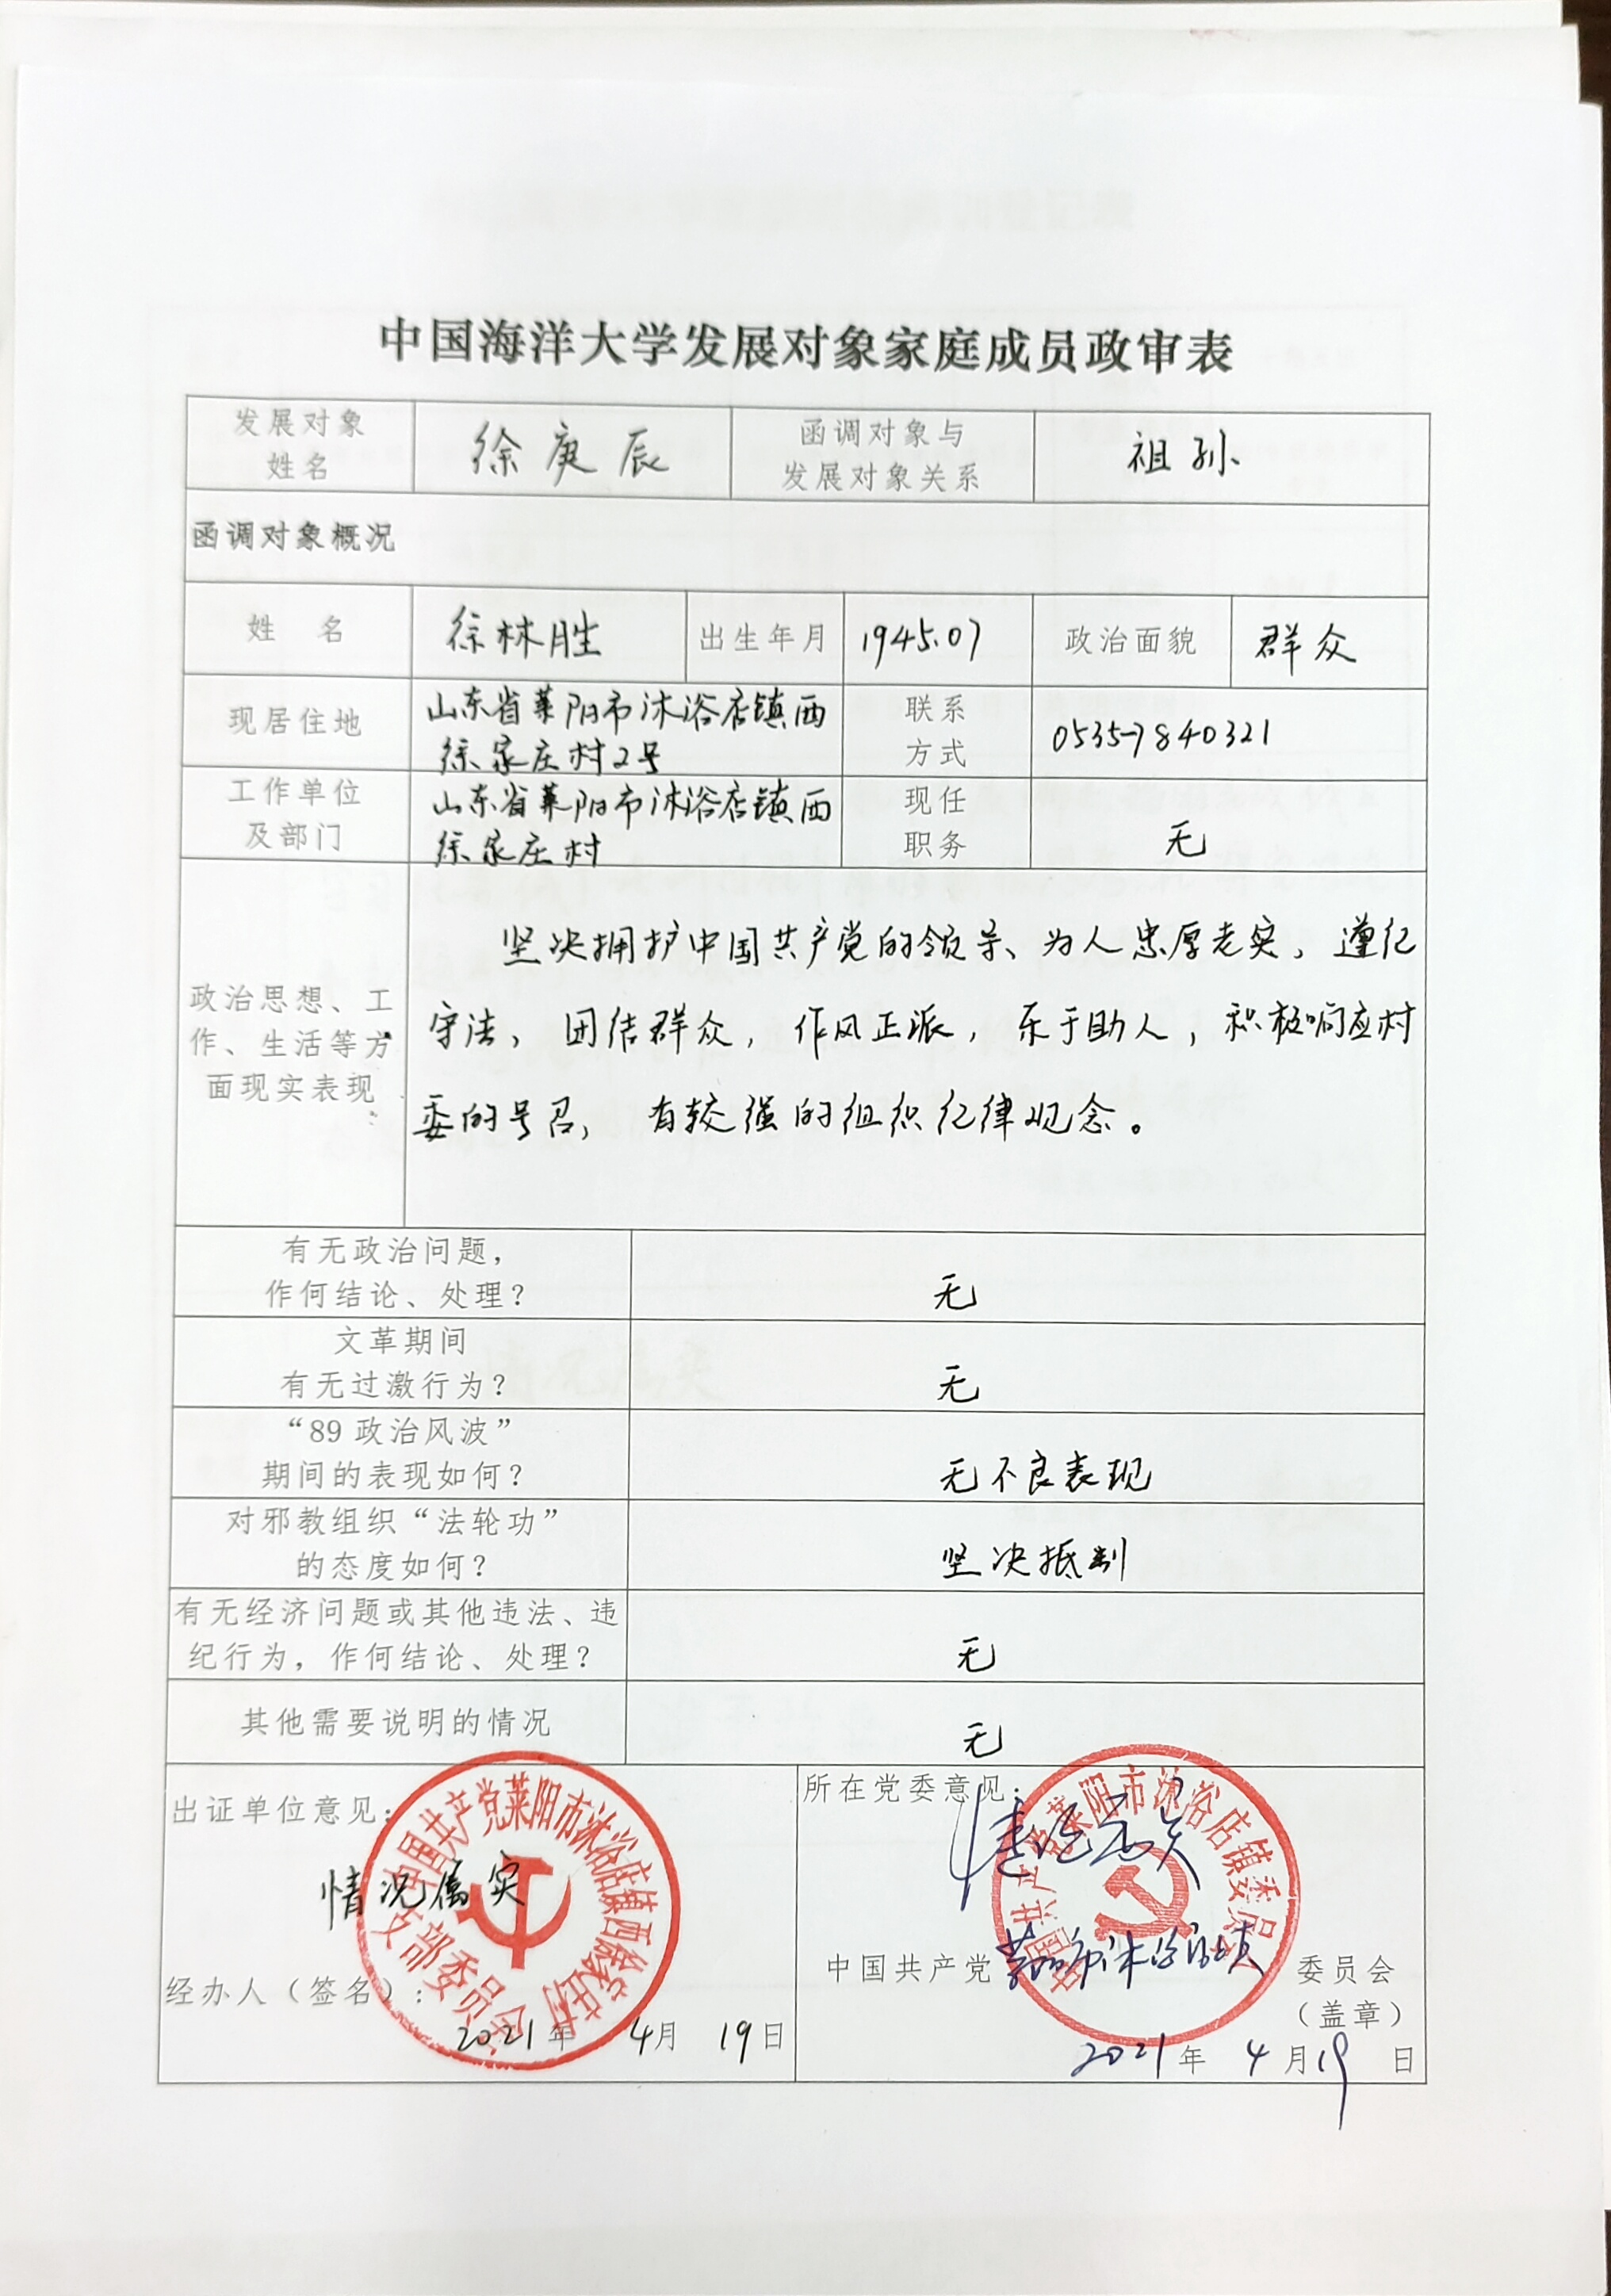 中国海洋大学发展对象家庭成员政审表
发展对象
姓名
徐庚辰
函调对象与
发展对象关系
祖孙
函调对象概况
姓 名
徐林胜
出生年月
1945.07
政治面貌
群众
现居住地
山东省莱阳市沐浴店镇西
徐家庄村2号
联系
方式
0535-7840321
工作单位
及部门
山东省莱阳市沐浴店镇西
徐家庄村
现任
职务
无
政治思想、工
作、生活等方
面现实表现
坚决拥护中国共产党的领导、为人忠厚老实,遵纪
守法,团结群众,作风正派,乐于助人,积极响应村
委的号召,有较强的组织纪律观念。
有无政治问题,
作何结论、处理?
无
文革期间
有无过激行为?
无
“89 政治风波”
期间的表现如何?
无不良表现
对邪教组织“法轮功”
的态度如何?
坚决抵制
有无经济问题或其他违法、违
纪行为,作何结论、处理?
无
其他需要说明的情况
无
出证单位意见:
情况属实
中国共产党莱阳市沐浴店镇西徐家庄村
支部委员会
经办人(签名):
2021年 4月 19日
所在党委意见:
情况属实
中国共产党莱阳市沐浴店镇委员会
中国共产党 莱阳市沐浴店镇 委员会
(盖章)
2021年 4月19日